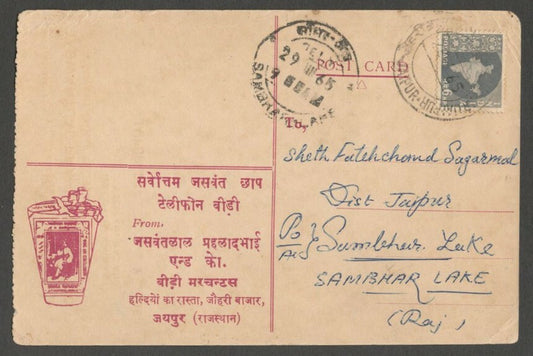 सांभर-लेक
29
65
SAMBHAR LAKE
POST CARD
To,
Sheth Fatehchand Sagarmal
Dist Jaipur
Po
Sambhar Lake
SAMBHAR LAKE
(Raj)
सर्वोत्तम जसवंत छाप
टेलीफोन बीड़ी
From,
जसवंतलाल प्रहलादभाई
एन्ड को.
बीड़ी मरचन्टस
हल्दियों का रास्ता, जौहरी बाजार,
जयपुर (राजस्थान)